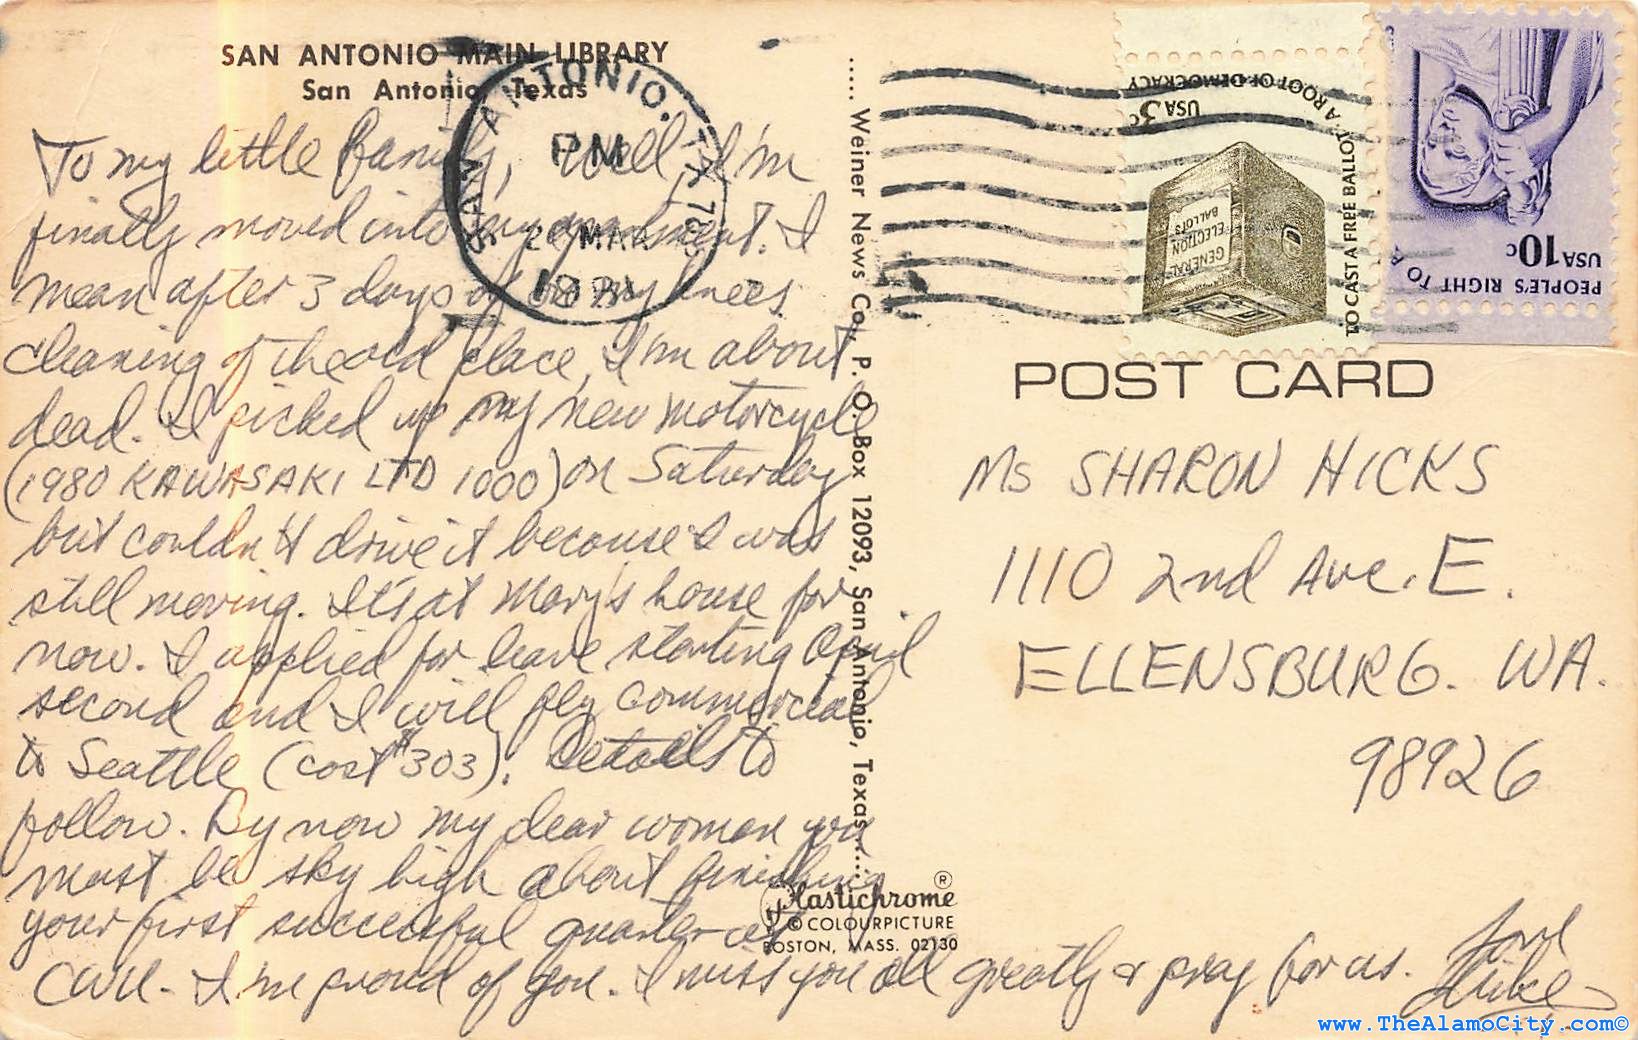 SAN ANTONIO MAIN LIBRARY
San Antonio, Texas
To my little family, Well I'm
finally moved into my apartment. I
mean after 3 days of on my knees
cleaning of the old place, I'm about
dead. I picked up my new motorcycle
(1980 KAWASAKI LTD 1000) on Saturday
but couldn't drive it because I was
still moving. It's at Mary's house for
now. I applied for leave starting April
second and I will fly commercial
to Seattle (cost $303). Details to
follow. By now my dear woman you
must be sky high about finishing
your first successful quarter at
CWU - I'm proud of you. I miss you all greatly & pray for us. Love
Mike
SAN ANTONIO, TX
PM
MAR
..... Weiner News Co., P. O. Box 12093, San Antonio, Texas.....
Plastichrome ®
© COLOURPICTURE
BOSTON, MASS. 02130
A ROOT OF DEMOCRACY
USA 3c
TO CAST A FREE BALLOT
GENERAL
ELECTION
BALLOTS
PEOPLE'S RIGHT TO
USA 10c
POST CARD
Ms SHARON HICKS
1110 2nd Ave. E.
ELLENSBURG. WA.
98926
www.TheAlamoCity.com©